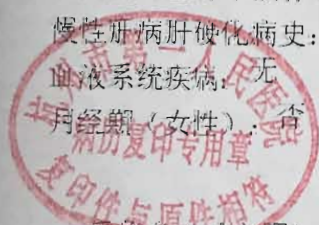 慢性肝病肝硬化病史:
血液系统疾病: 无
月经期(女性): 否
第一人民医院
病历复印专用章
复印件与原件相符